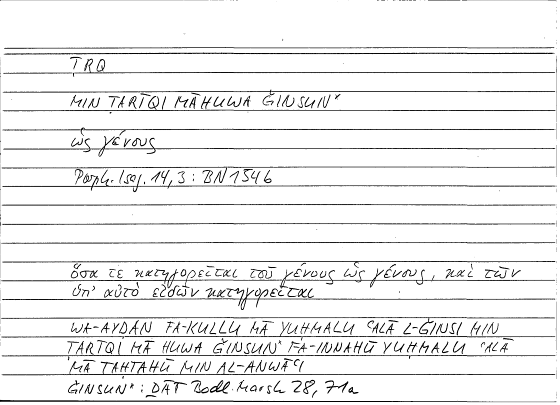 ṬRQ
MIN ṬARĪQI MĀHUWA ǦINSUN*
ὡς γένους
Porph. Isag. 14,3 : BN 154b
ὅσα τε κατηγορεῖται τοῦ γένους ὡς γένους, καὶ τῶν
ὑπ' αὐτὸ εἰδῶν κατηγορεῖται
WA-AYḌAN FA-KULLU MĀ YUḤMALU ʿALĀ L-ǦINSI MIN
ṬARĪQI MĀ HUWA ǦINSUN* FA-INNAHŪ YUḤMALU ʿALĀ
MĀ TAḤTAHŪ MIN AL-ANWĀʿI
ǦINSUN* : ḎĀT Bodl. Marsh 28, 71a